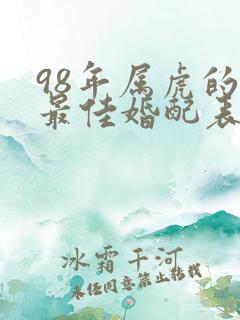 98年属虎的
最佳婚配表
冰霜千河
未经同意禁止转载